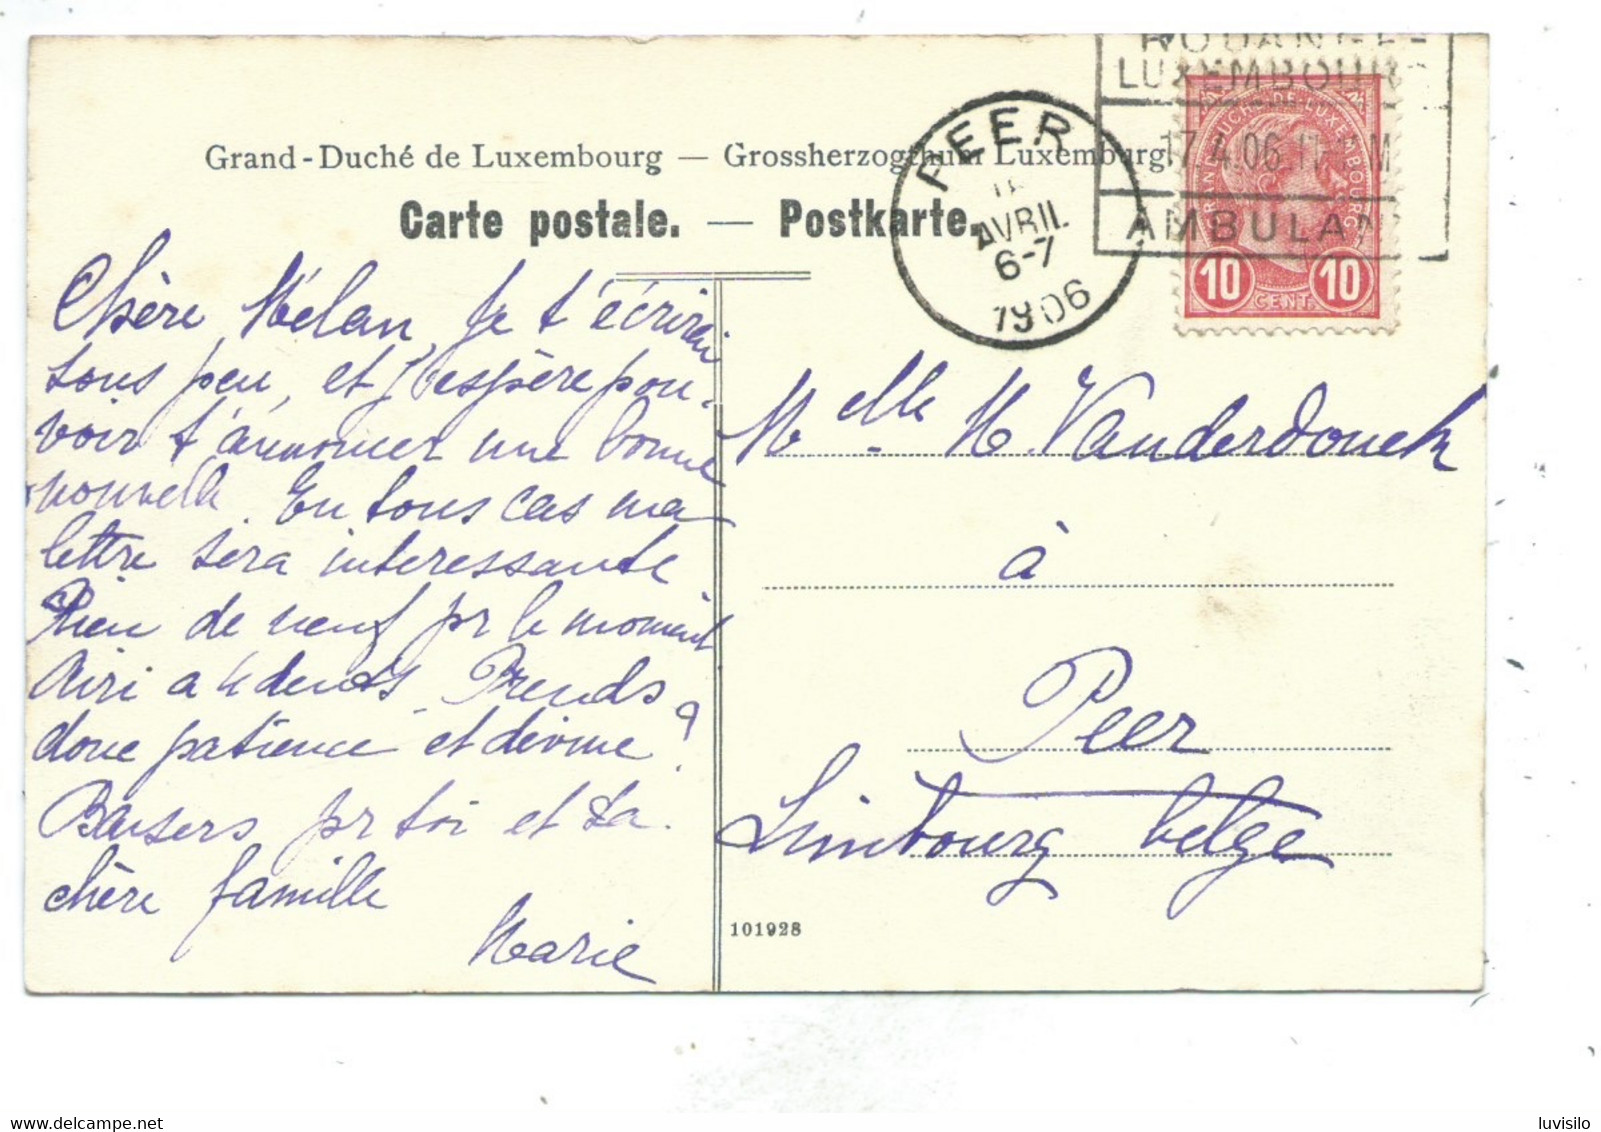 RODANGE-
LUXEMBOURG
17.4.06
AMBULAN
PEER
AVRIL
6-7
1906
GRAND DUCHÉ-DE-LUXEMBOURG
10 CENT. 10
Grand-Duché de Luxembourg — Grossherzogthum Luxemburg
Carte postale. — Postkarte.
Chère Mélan, Je t'écrirai
sous peu, et j'espère pou-
voir t'annoncer une bonne
nouvelle. En tous cas ma
lettre sera interessante
Rien de neuf pr le moment
a 4 dents. Prends
donc patience et devine?
Baisers pr toi et ta
chère famille
Marie
Melle M. Vanderdonck
à
Peer
Limbourg belge
101928
luvisilo